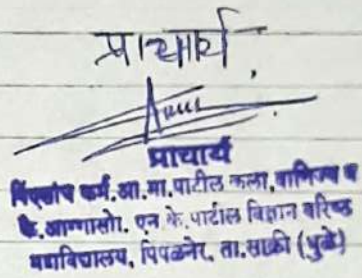 प्राचार्य
प्राचार्य
कर्म.आ.मा.पाटील कला, वाणिज्य व
कै.आण्णासो. एन.के.पाटील विज्ञान वरिष्ठ
महाविद्यालय, पिंपळनेर, ता.साक्री (धुळे)